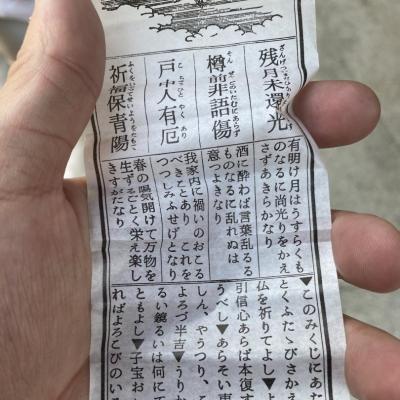 残月未還光
樽前非語傷
戸中人有厄
祈福保青陽
有明け月はうすらくも
のなるに尚光りをかえ
さずあきらかなり
酒に酔わば言葉乱るる
ものなるに乱れぬは
意つよきなり
我家内に禍いのおこる
べきことあり これを
つつしみふせげとなり
春の陽気開けて万物を
生ずるごとく栄え楽し
きすがたなり
▼このみくじにあた
とくふたゝびさかえ
仏を祈りてよし▼よ
引信心あらば本復す
うべし▼あらそい事
しん、やうつり、こ
よろづ半吉▼うりか
るい鏡るいは何にて
ともよし▼子宝お
ればよろこびのい